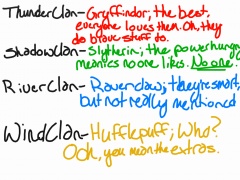 ThunderClan- Gryffindor; the best,
everyone loves them. Oh, they
do brave stuff.
ShadowClan- Slytherin; the powerhungry
meanies no one likes. No one.
RiverClan- Ravenclaw; they're smart,
but not really mentioned
WindClan- Hufflepuff; Who?
Ooh, you mean the extras.